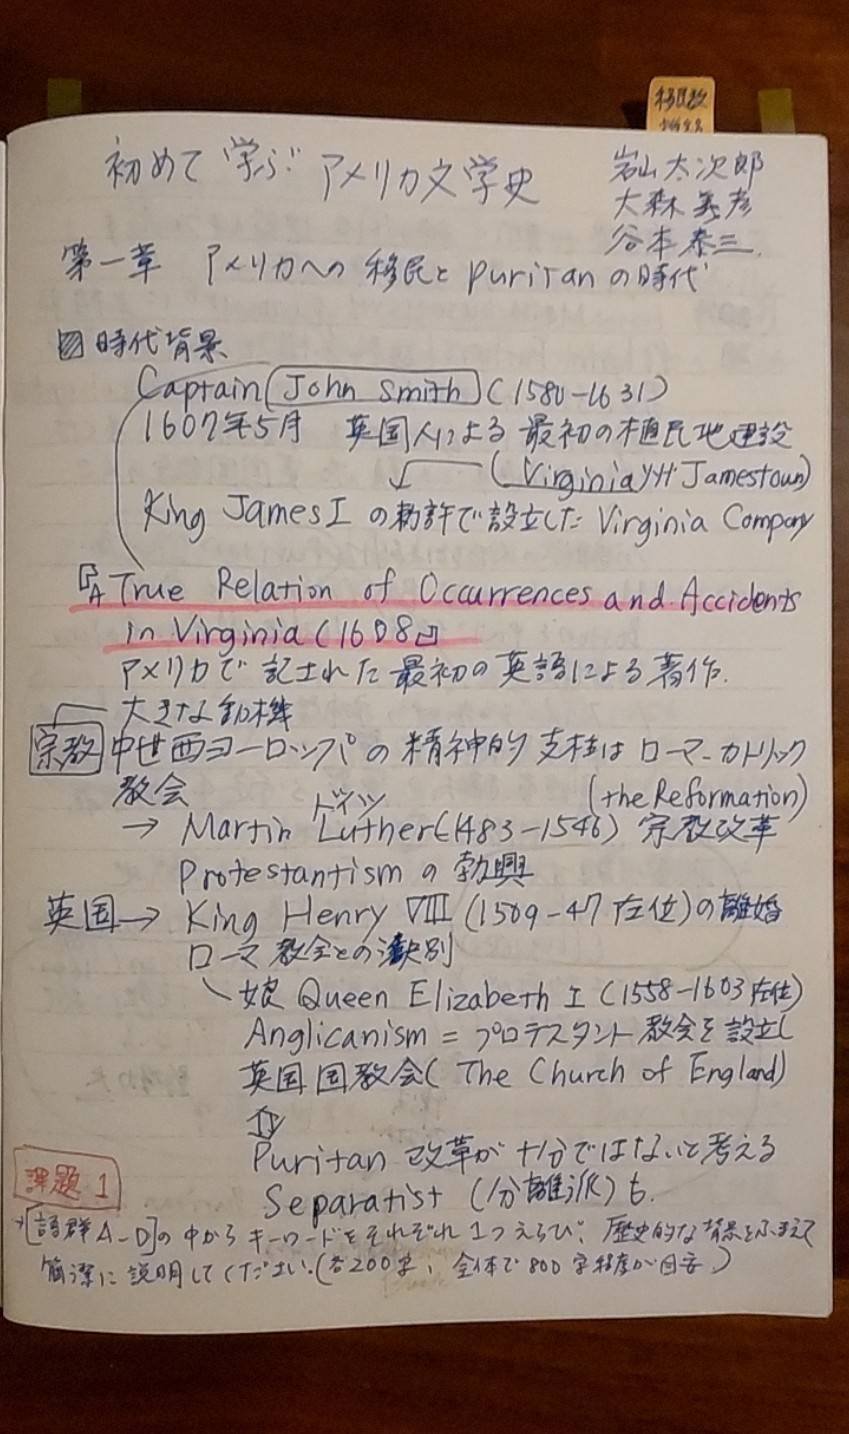 移民数
初めて学ぶ アメリカ文学史
岩山太次郎
大森義彦
谷本泰三.
第一章 アメリカへの移民とpuritanの時代
時代背景
Captain John Smith (1580-1631)
1607年5月 英国人による最初の植民地建設
(Virginia州Jamestown)
King James I の勅許で設立した Virginia Company
『A True Relation of Occurrences and Accidents
in Virginia (1608』
アメリカで記された最初の英語による著作.
大きな動機
宗教 中世西ヨーロッパの精神的支柱はローマ・カトリック
教会
ドイツ (the Reformation)
→ Martin Luther(1483-1546) 宗教改革
Protestantismの勃興
英国→ King Henry VIII (1509-47在位)の離婚
ローマ教会との決別
娘 Queen Elizabeth I (1558-1603在位)
Anglicanism = プロテスタント教会を設立し
英国国教会( The Church of England)
Puritan 改革が十分ではないと考える
Separatist (分離派)も.
課題1
→[語群A-D]の中からキーワードをそれぞれ1つえらび、歴史的な背景をふまえて
簡潔に説明してください.(各200字、全体で800字程度が目安)